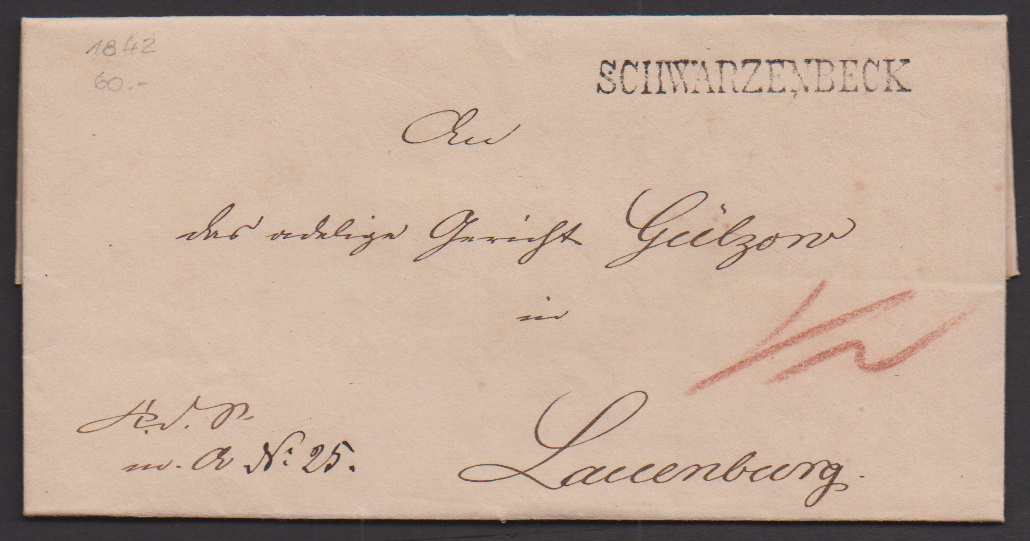 1842
60.-
SCHWARZENBECK
An
das adelige Gericht Gülzow
in
Lauenburg.
m. A No: 25.